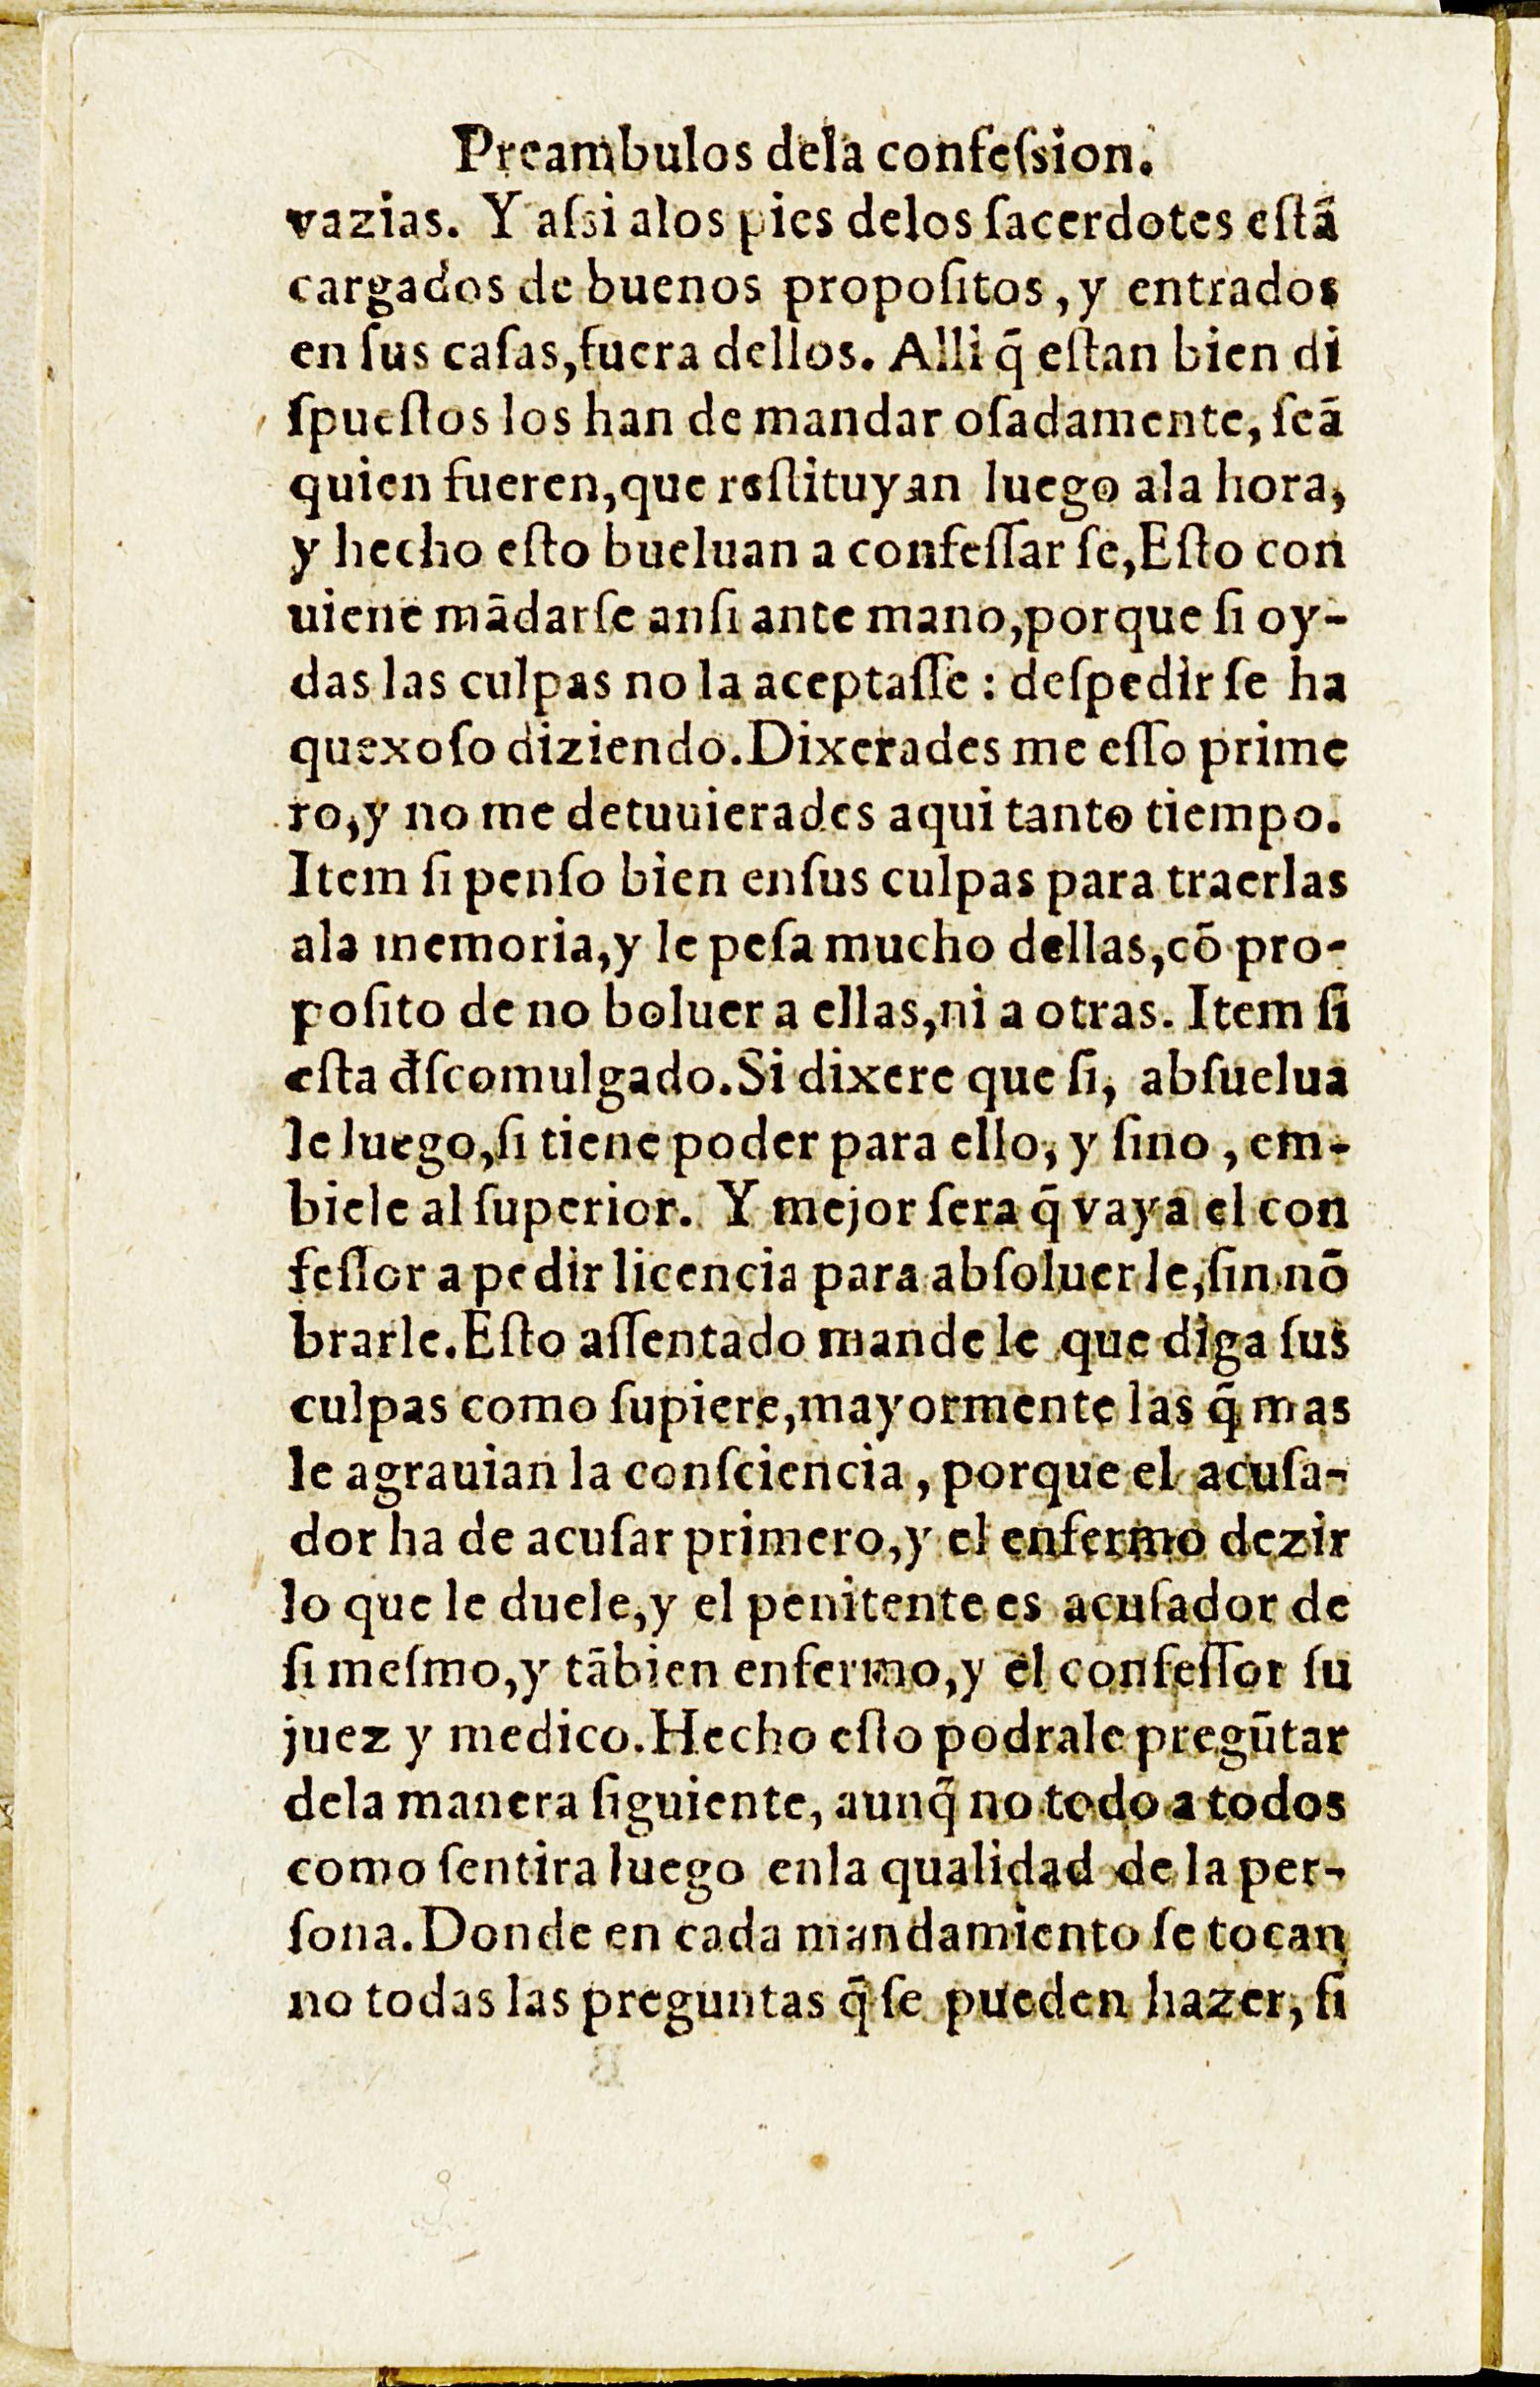 Preambulos dela confeſsion.
vazias. Y aſsi alos pies delos ſacerdotes eſtā
cargados de buenos propoſitos, y entrados
en ſus caſas, fuera dellos. Alli q̄ eſtan bien di
ſpueſtos los han de mandar oſadamente, ſeā
quien fueren, que reſtituyan luego ala hora,
y hecho eſto bueluan a confeſſar ſe, Eſto con
uiene mādarſe anſi ante mano, porque ſi oy-
das las culpas no la aceptaſſe: deſpedir ſe ha
quexoſo diziendo. Dixerades me eſſo prime
ro, y no me detuuierades aqui tanto tiempo.
Item ſi penſo bien enſus culpas para traerlas
ala memoria, y le peſa mucho dellas, cō pro-
poſito de no boluer a ellas, ni a otras. Item ſi
eſta đſcomulgado. Si dixere que ſi, abſuelua
le luego, ſi tiene poder para ello, y ſino, em-
biele al ſuperior. Y mejor ſera q̄ vaya el con
feſſor a pedir licencia para abſoluer le, ſin nō
brarle. Eſto aſſentado mande le que diga ſus
culpas como ſupiere, mayormente las q̄ mas
le agrauian la conſciencia, porque el acuſa-
dor ha de acuſar primero, y el enfermo dezir
lo que le duele, y el penitente es acuſador de
ſi meſmo, y tābien enfermo, y el confeſſor ſu
juez y medico. Hecho eſto podrale pregūtar
dela manera ſiguiente, aunq̄ no todo a todos
como ſentira luego enla qualidad de la per-
ſona. Donde en cada mandamiento ſe tocan
no todas las preguntas q̄ ſe pueden hazer, ſi